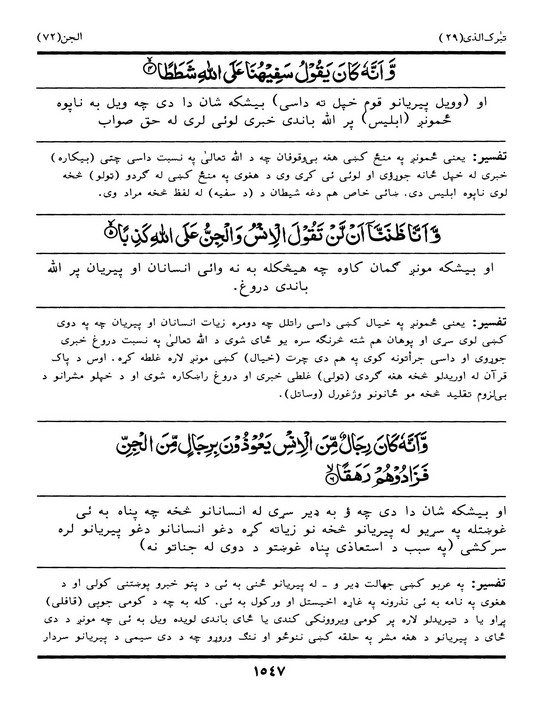 تبٰرک الذی (۲۹)
الجن (۷۲)
وَّاَنَّهٗ كَانَ يَقُوْلُ سَفِيْهُنَا عَلَى اللّٰهِ شَطَطًا ۝۴
او (وویل پیریانو قوم خپل ته داسی) بیشکه شان دا دی چه ویل به ناپوه
ځمونږ (ابلیس) پر الله باندی خبری لوئی لری له حق صواب
تفسیر: یعنی ځمونږ په منځ کښی هغه بی‌وقوفان چه د الله تعالیٰ په نسبت داسی چتی (بیکاره)
خبری له خپل ځانه جوړوی او لوئی ئی کری وی د هغوی په منځ کښی له ګردو (تولو) څخه
لوی ناپوه ابلیس دی. ښائی خاص هم دغه شیطان د (د سفیه) له لفظ څخه مراد وی.
وَّاَنَّا ظَنَنَّآ اَنْ لَّنْ تَقُوْلَ الْاِنْسُ وَالْجِنُّ عَلَى اللّٰهِ كَذِبًا ۝۵
او بیشکه مونږ ګمان کاوه چه هیڅکله به نه وائی انسانان او پیریان پر الله
باندی دروغ.
تفسیر: یعنی ځمونږ په خیال کښی داسی راتلل چه دومره زیات انسانان او پیریان چه په دوی
کښی لوی سړی او پوهان هم شته څرنګه سره یو ځای شوی د الله تعالیٰ په نسبت دروغ خبری
جوړوی او داسی جرأتونه کوی په هم دی چرت (خیال) کښی مونږ لاره غلطه کړه. اوس د پاک
قرآن له اوریدلو څخه هغه ګردی (تولی) غلطی خبری او دروغ راښکاره شوی او د خپلو مشرانو د
بی‌لزوم تقلید څخه مو ځانونو وژغورل (وساتل).
وَّاَنَّهٗ كَانَ رِجَالٌ مِّنَ الْاِنْسِ يَعُوْذُوْنَ بِرِجَالٍ مِّنَ الْجِنِّ
فَزَادُوْهُمْ رَهَقًا ۝۶
او بیشکه شان دا دی چه ؤ به ډیر سړی له انسانانو څخه چه پناه به ئی
غوښتله په سړیو له پیریانو څخه نو زیاته کړه دغو انسانانو دغو پیریانو لره
سرکشی (په سبب د استعاذی پناه غوښتو د دوی له جناتو نه)
تفسیر: په عربو کښی جهالت ډیر و ـ له پیریانو ځنی به ئی د پټو خبرو پوښتنی کولی او د
هغوی په نامه به ئی نذرونه په غاړه اخیستل او ورکول به ئی. کله به چه د کومی جوپی (قافلی)
پړاو یا د تیریدلو لاره پر کومی ویروونکی کندی یا ځای باندی لویده ویل به ئی چه مونږ د دی
ځای د پیریانو د هغه مشر په حلقه کښی ننوځو او ننګ وروړو چه د دی سیمی د پیریانو سردار
۱۵۴۷